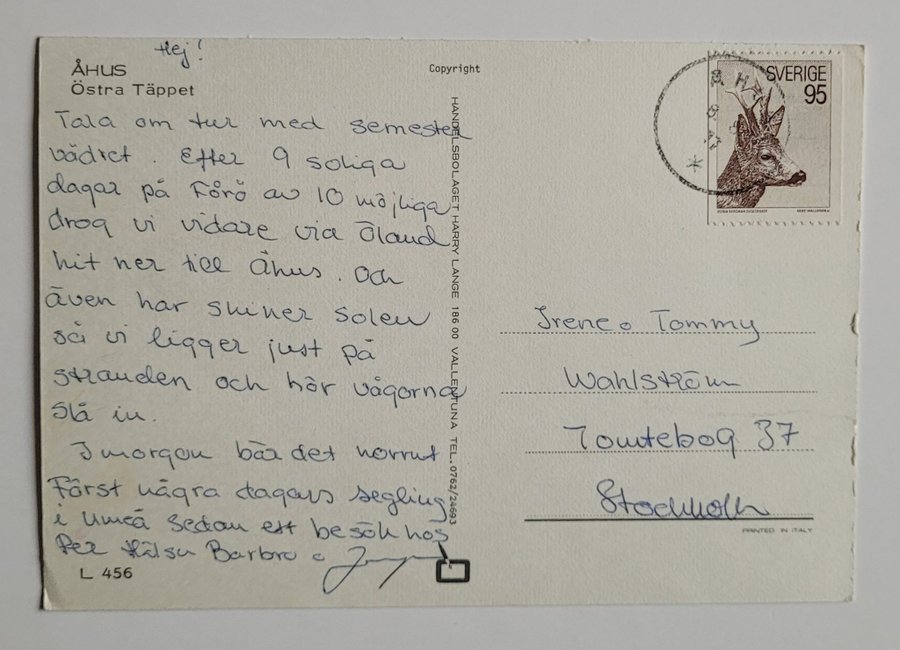 Hej!
ÅHUS
Östra Täppet
Tala om tur med semester
vädret. Efter 9 soliga
dagar på Fårö av 10 möjliga
drog vi vidare via Öland
hit ner till Åhus. Och
även här skiner solen
så vi ligger just på
stranden och hör vågorna
slå in.
I morgon bär det norrut
Först några dagars segling
i Umeå sedan ett besök hos
Per Hälsn Barbro o
L 456
Copyright
HANDELSBOLAGET HARRY LANGE 186 00 VALLENTUNA TEL. 0762/24693
SVERIGE
95
Irene o Tommy
Wahlström
Tomtebog 37
Stockholm
PRINTED IN ITALY